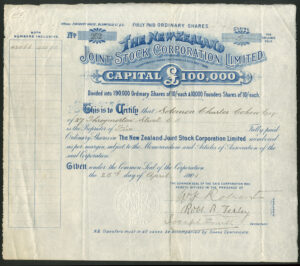 FULLY PAID ORDINARY SHARES.
No
THE NEW ZEALAND
JOINT STOCK CORPORATION LIMITED
CAPITAL £100,000
Divided into 190,000 Ordinary Shares of 10/- each & 10,000 Founders Shares of 10/- each
NUMBERS INCLUSIVE.
This is to Certify that Solomon Charles Cohen Esq
of 27 Throgmorton Street E.C.
is the Proprietor of Five Fully paid
Ordinary Shares in The New Zealand Joint Stock Corporation Limited
as per margin, subject to the Memorandum and Articles of Association of the
said Corporation.
Given under the Common Seal of the Corporation
the 25th day of April
THE COMMON SEAL OF THE SAID CORPORATION WAS
HERETO AFFIXED IN THE PRESENCE OF
N.B. Transfers must in all cases be accompanied by Share Certificate.